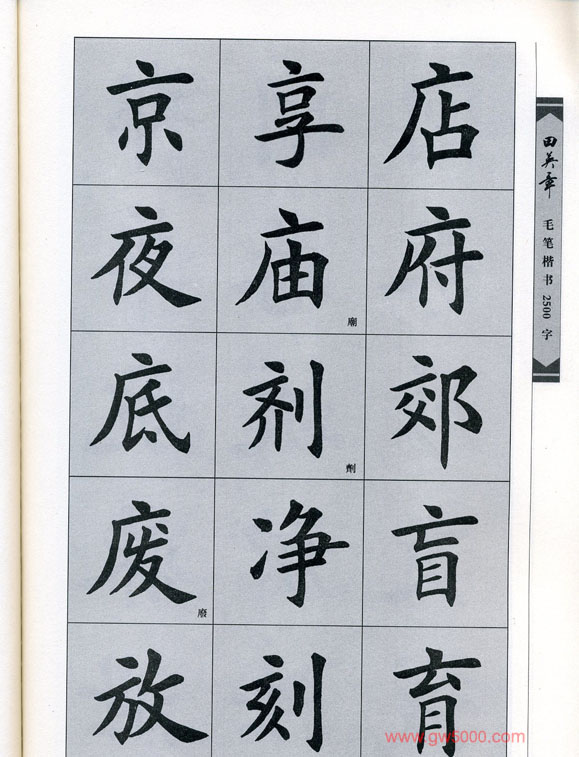 京 享 店
夜 庙 府
廟
底 剂 郊
劑
废 净 盲
廢
放 刻 育
田英章
毛笔楷书2500字
www.gw5000.com